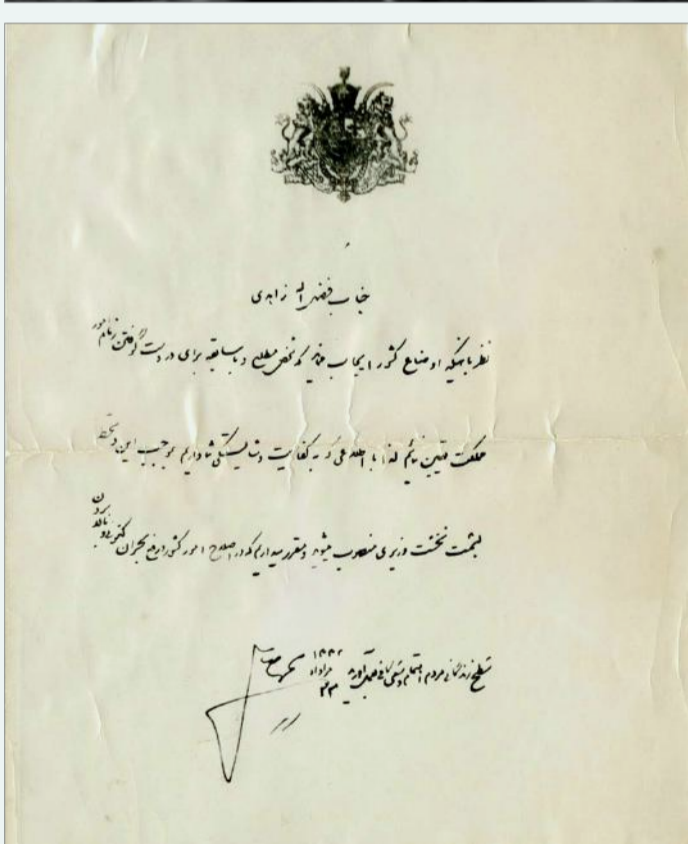 جناب فضل اله زاهدی
نظر باینکه اوضاع کشور ایجاب مینماید که شخص مطلع و با سابقه برای در دست گرفتن زمام امور
مملکت تعیین نمائیم لذا با اطلاعی که به کفایت و شایستگی شما داریم بموجب این دستخط
بسمت نخست وزیری منصوب میشوید و مقرر میداریم که در اصلاح امور کشور و رفع بحران کنونی و بالا بردن
سطح زندگانی مردم اهتمام و سعی کافی بعمل آورید
۲۲
مرداد
۱۳۳۲